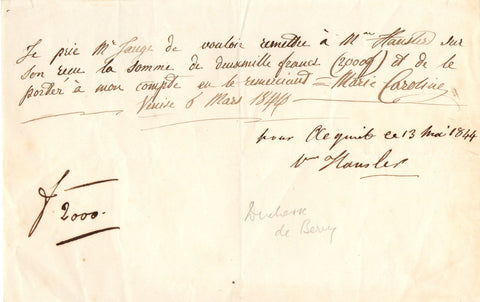 Je prie Mr Jauge de vouloir remettre à Mme Hausler sur
son reçu la somme de deuxmille francs (2000f) et de le
porter à mon compte en le remerciant = Marie Caroline
Venise 6 Mars 1844
pour Acquit ce 13 mai 1844
Hausler
f 2000.
Duchesse
de Berry